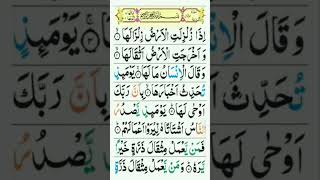 بِسْمِ اللهِ الرَّحْمٰنِ الرَّحِيْمِ
اِذَا زُلْزِلَتِ الْاَرْضُ زِلْزَالَهَا ۙ
وَاَخْرَجَتِ الْاَرْضُ اَثْقَالَهَا ۙ
وَقَالَ الْاِنْسَانُ مَا لَهَا ۚ يَوْمَئِذٍ
تُحَدِّثُ اَخْبَارَهَا ۙ بِاَنَّ رَبَّكَ
اَوْحٰى لَهَا ؕ يَوْمَئِذٍ يَّصْدُرُ
النَّاسُ اَشْتَاتًا ۙ لِّيُرَوْا اَعْمَالَهُمْ ؕ
فَمَنْ يَّعْمَلْ مِثْقَالَ ذَرَّةٍ خَيْرًا
يَّرَهٗ ؕ وَمَنْ يَّعْمَلْ مِثْقَالَ ذَرَّةٍ